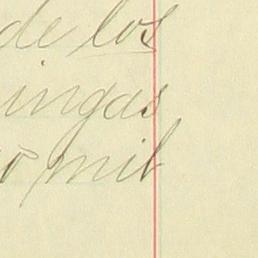 de los
ingas
o mil